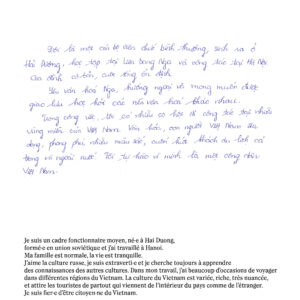 Đời là một cán bộ viên chức bình thường, sinh ra ở
Hải Dương, học tập tại Liên bang Nga và công tác tại Hà Nội.
Gia đình cơ bản, cuộc sống ổn định.
Yêu văn hoá Nga, hướng ngoại và mong muốn được
giao lưu học hỏi các nền văn hoá khác nhau.
Trong công việc, tôi có nhiều cơ hội đi công tác tại nhiều
vùng miền của Việt Nam. Văn hoá, con người Việt Nam đa
dạng, phong phú nhiều màu sắc, cuốn hút khách du lịch cả
trong và ngoài nước. Tôi tự hào vì mình là một công dân
Việt Nam.
Je suis un cadre fonctionnaire moyen, né·e à Hai Duong,
formé·e en union soviétique et j'ai travaillé à Hanoi.
Ma famille est normale, la vie est tranquille.
J'aime la culture russe, je suis extraverti·e et je cherche toujours à apprendre
des connaissances des autres cultures. Dans mon travail, j'ai beaucoup d'occasions de voyager
dans différentes régions du Vietnam. La culture du Vietnam est variée, riche, très nuancée,
et attire les touristes de partout qui viennent de l'intérieur du pays comme de l'étranger.
Je suis fier·e d'être citoyen·ne du Vietnam.